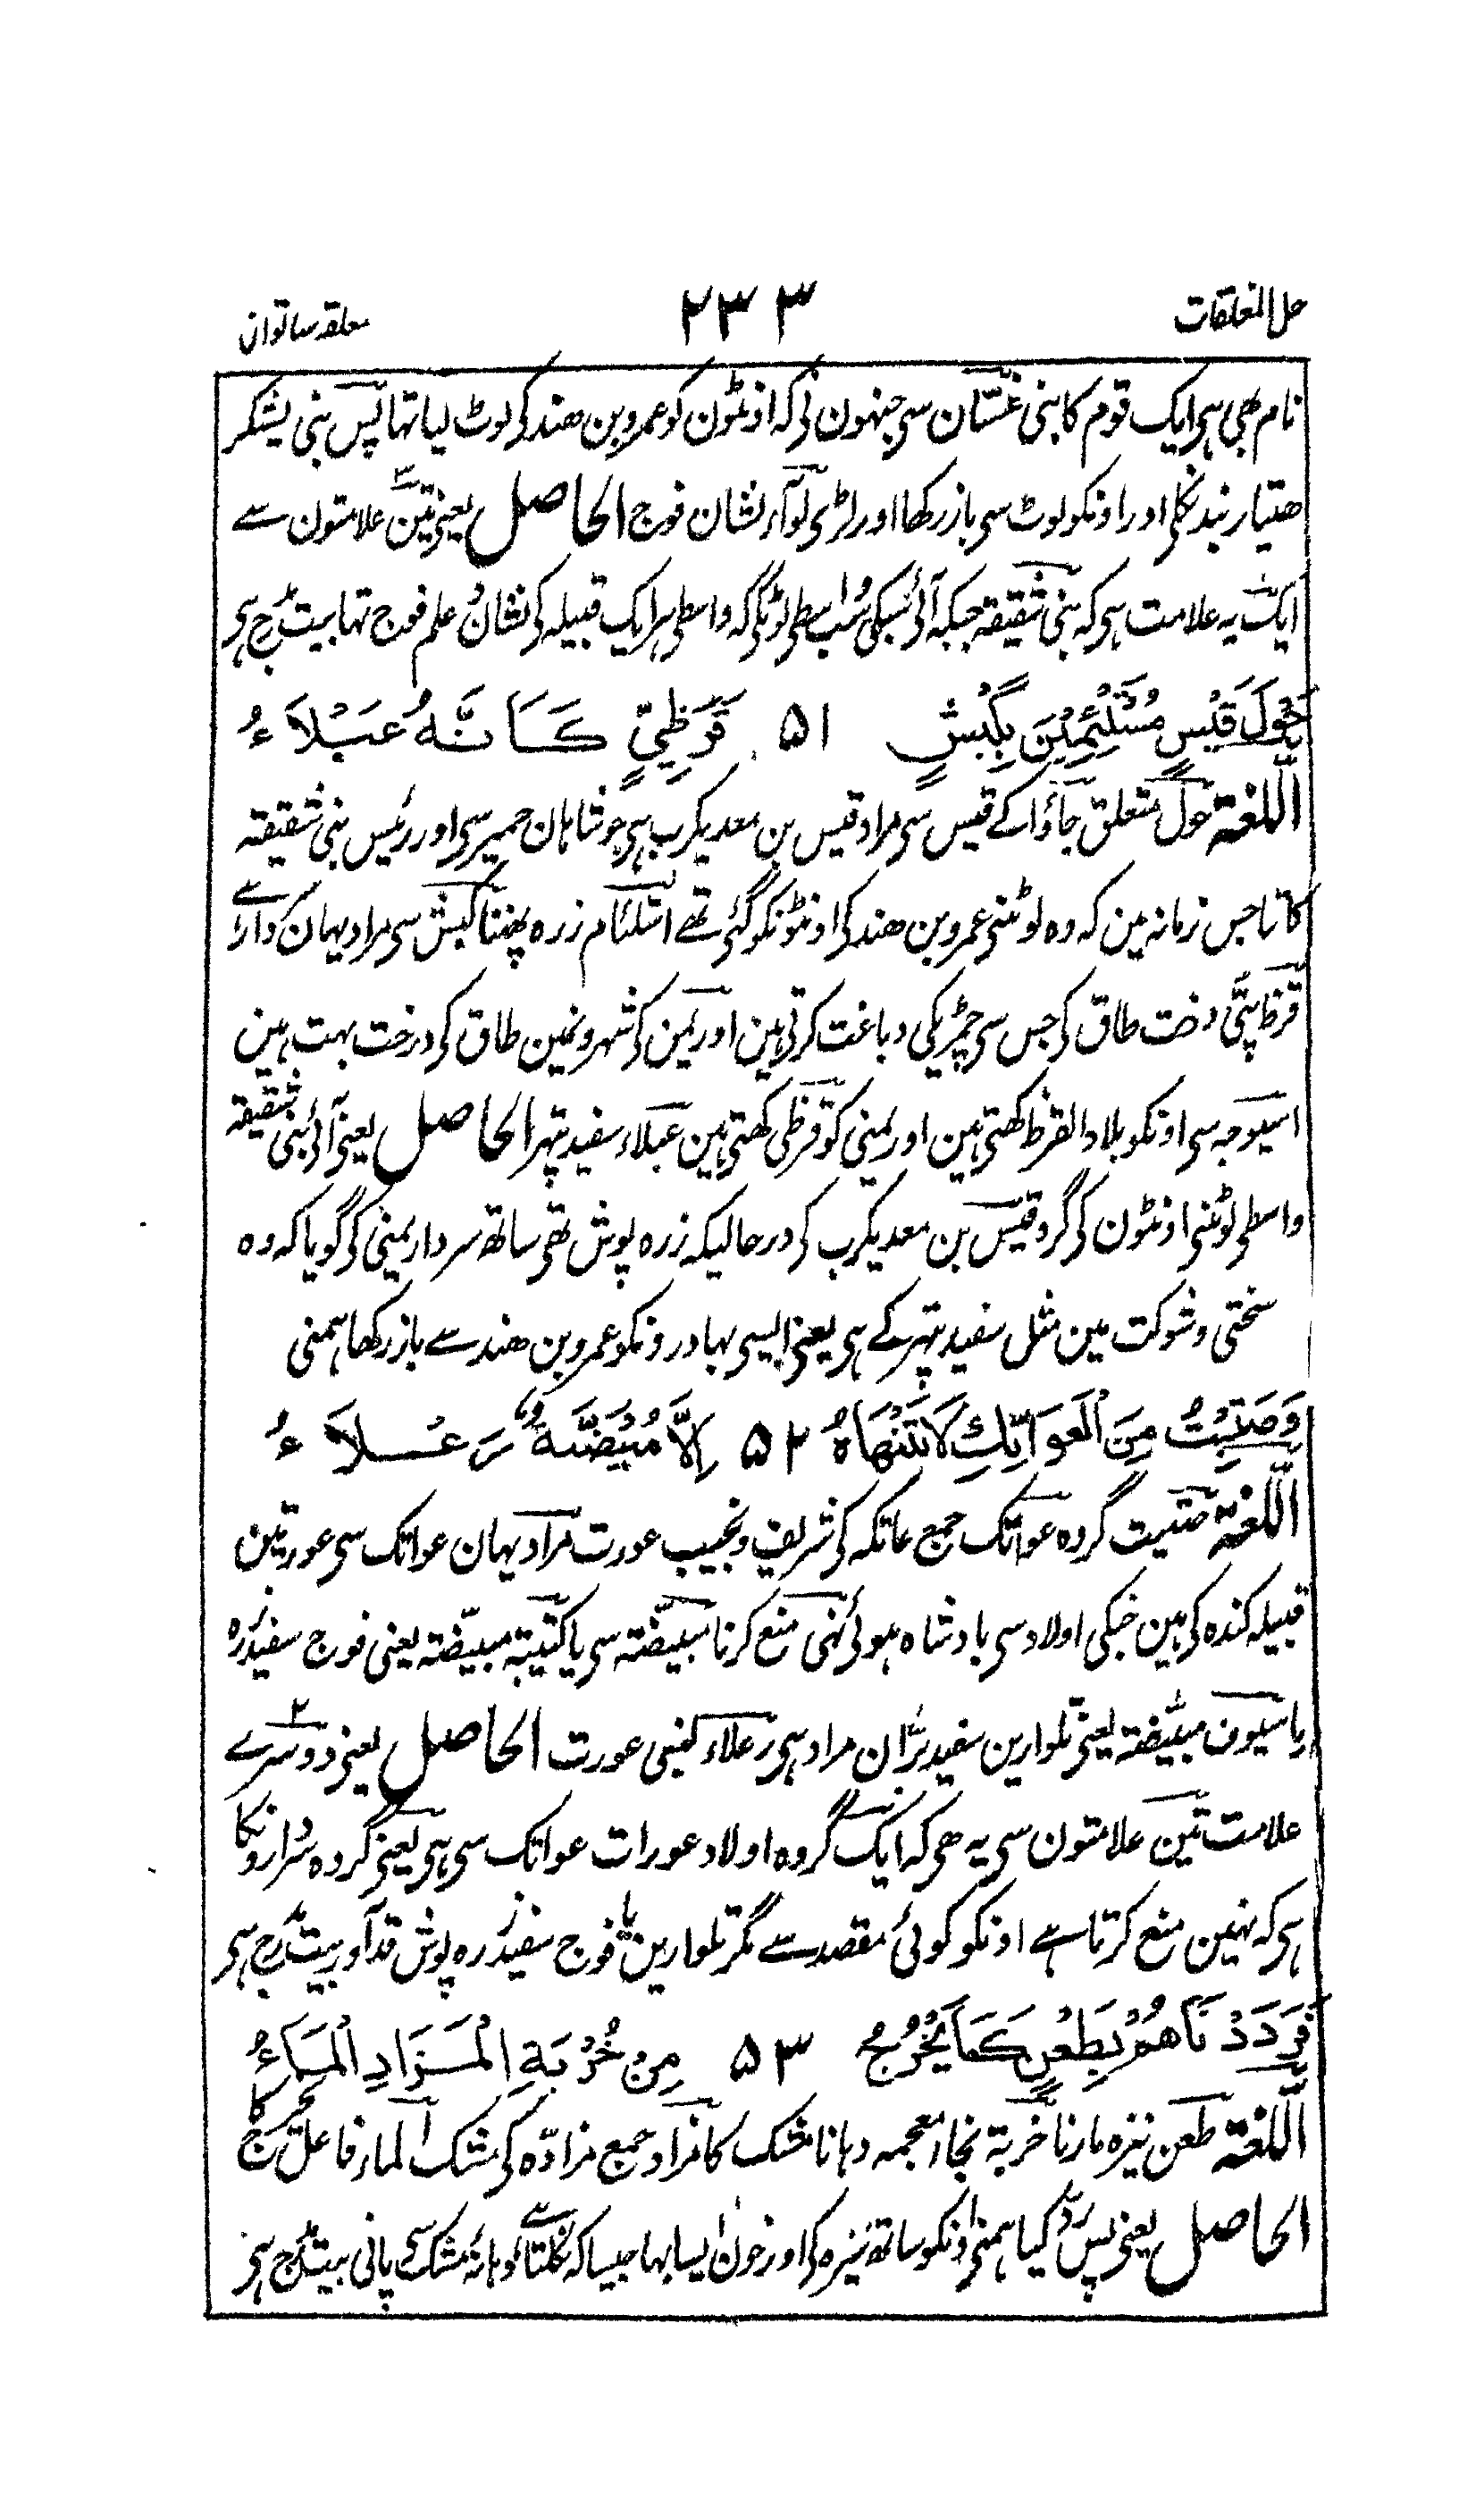 حل المعلقات ٢٣٣ معلقہ ساتوان
نام بھی ہی ایک قوم کا بنی غسّان سی جنہون نی کہ اونٹون کو عمرو بن ھند کی لوٹ لیا تہا پس بنی یشکر
ھتیار بند نکلی اور اونکو لوٹ سی باز رکھا اور لڑی لوآء نشان فوج الحاصل یعنی تین علامتون سے
ایک یہ علامت ہی کہ بنی شقیقہ جبکہ آئی سبکی سب واسطی لوٹنی کہ واسطی ہر ایک قبیلہ کی نشان و علم فوج تہا بیت رج ہی
حَوْلَ قَيْسٍ مُسْتَلْئِمِيْنَ بِكَبْشٍ ٥١ قَرَظِيٍّ كَاَنَّهُ عَبْلَاءُ
اللّغة حول متعلق جاؤا کے قیس سی مراد قیس بن معدیکرب ہی جو شاہان حمیر سی اور رئیس بنی شقیقہ
کا تہا جس زمانہ مین کہ وہ لوٹنی عمرو بن ھند کی اونٹونکو گئی تھے استلئام زرہ پہننا کبش سی مراد یہان
قرظ پتّی درخت طاق کی جس سی چمڑیکی دباغت کرتی ہین اور یمن کی شہرونمین طاق کی درخت بہت ہین
اسیوجہ سی اونکو بلاد القرظ کہتی ہین اور یمنی کو قرظی کہتی ہین عبلاء سفید پتہر الحاصل یعنی آئی بنی شقیقہ
واسطی لوٹنی اونٹون کی گرد قیس بن معدیکرب کی درحالیکہ زرہ پوش تھی ساتھ سردار یمنی کی گویا کہ وہ
سختی و شوکت مین مثل سفید پتہر کے ہی یعنی ایسی بہادرونکو عمرو بن ھند سے باز رکھا ہمنی
وَصَتِيْتٌ مِنَ الْعَوَاتِكِ لَا تَنْهَاهُ ٥٢ اِلَّا مُبْيَضَّةٌ رَعْلَاءُ
اللّغة صتیت گروہ عواتک جمع عاتکہ کی شریف و نجیب عورت مراد یہان عواتک سی عورتین
قبیلہ کندہ کی ہین جنکی اولاد سی بادشاہ ہوئی نہی منع کرنا مبیضّتہ سی یا کتیبۃ مبیّضۃ یعنی فوج سفید زرہ
یا سیوف مبیّضۃ یعنی تلوارین سفید برّان مراد ہی رعلاء لنبی عورت الحاصل یعنی دوسرے
علامت تین علامتون سی یہ ھی کہ ایک گروہ اولاد عورات عواتک سی ہی یعنی گروہ سردارونکا
ہی کہ نہین منع کرتا ہے اونکو کوئی مقصد سے مگر تلوارین یا فوج سفید زرہ پوش قدآور بیت رج ہی
فَرَدَدْنَاهُمُ بِطَعْنٍ كَمَا يَخْرُجُ ٥٣ مِنْ خُرْبَةِ الْمَزَادِ الْمَاءُ
اللّغة طعن نیزہ مارنا خربۃ بخاء معجمہ دہانا مشک کا مزاد جمع مزادہ کی مشک الماء فاعل یخرج کا
الحاصل یعنی پس رد کیا ہمنی اونکو ساتھ نیزہ کی اور خون ایسا بہا جیسا کہ نکلتا ہے دہانۂ مشک سی پانی بیت رج ہی